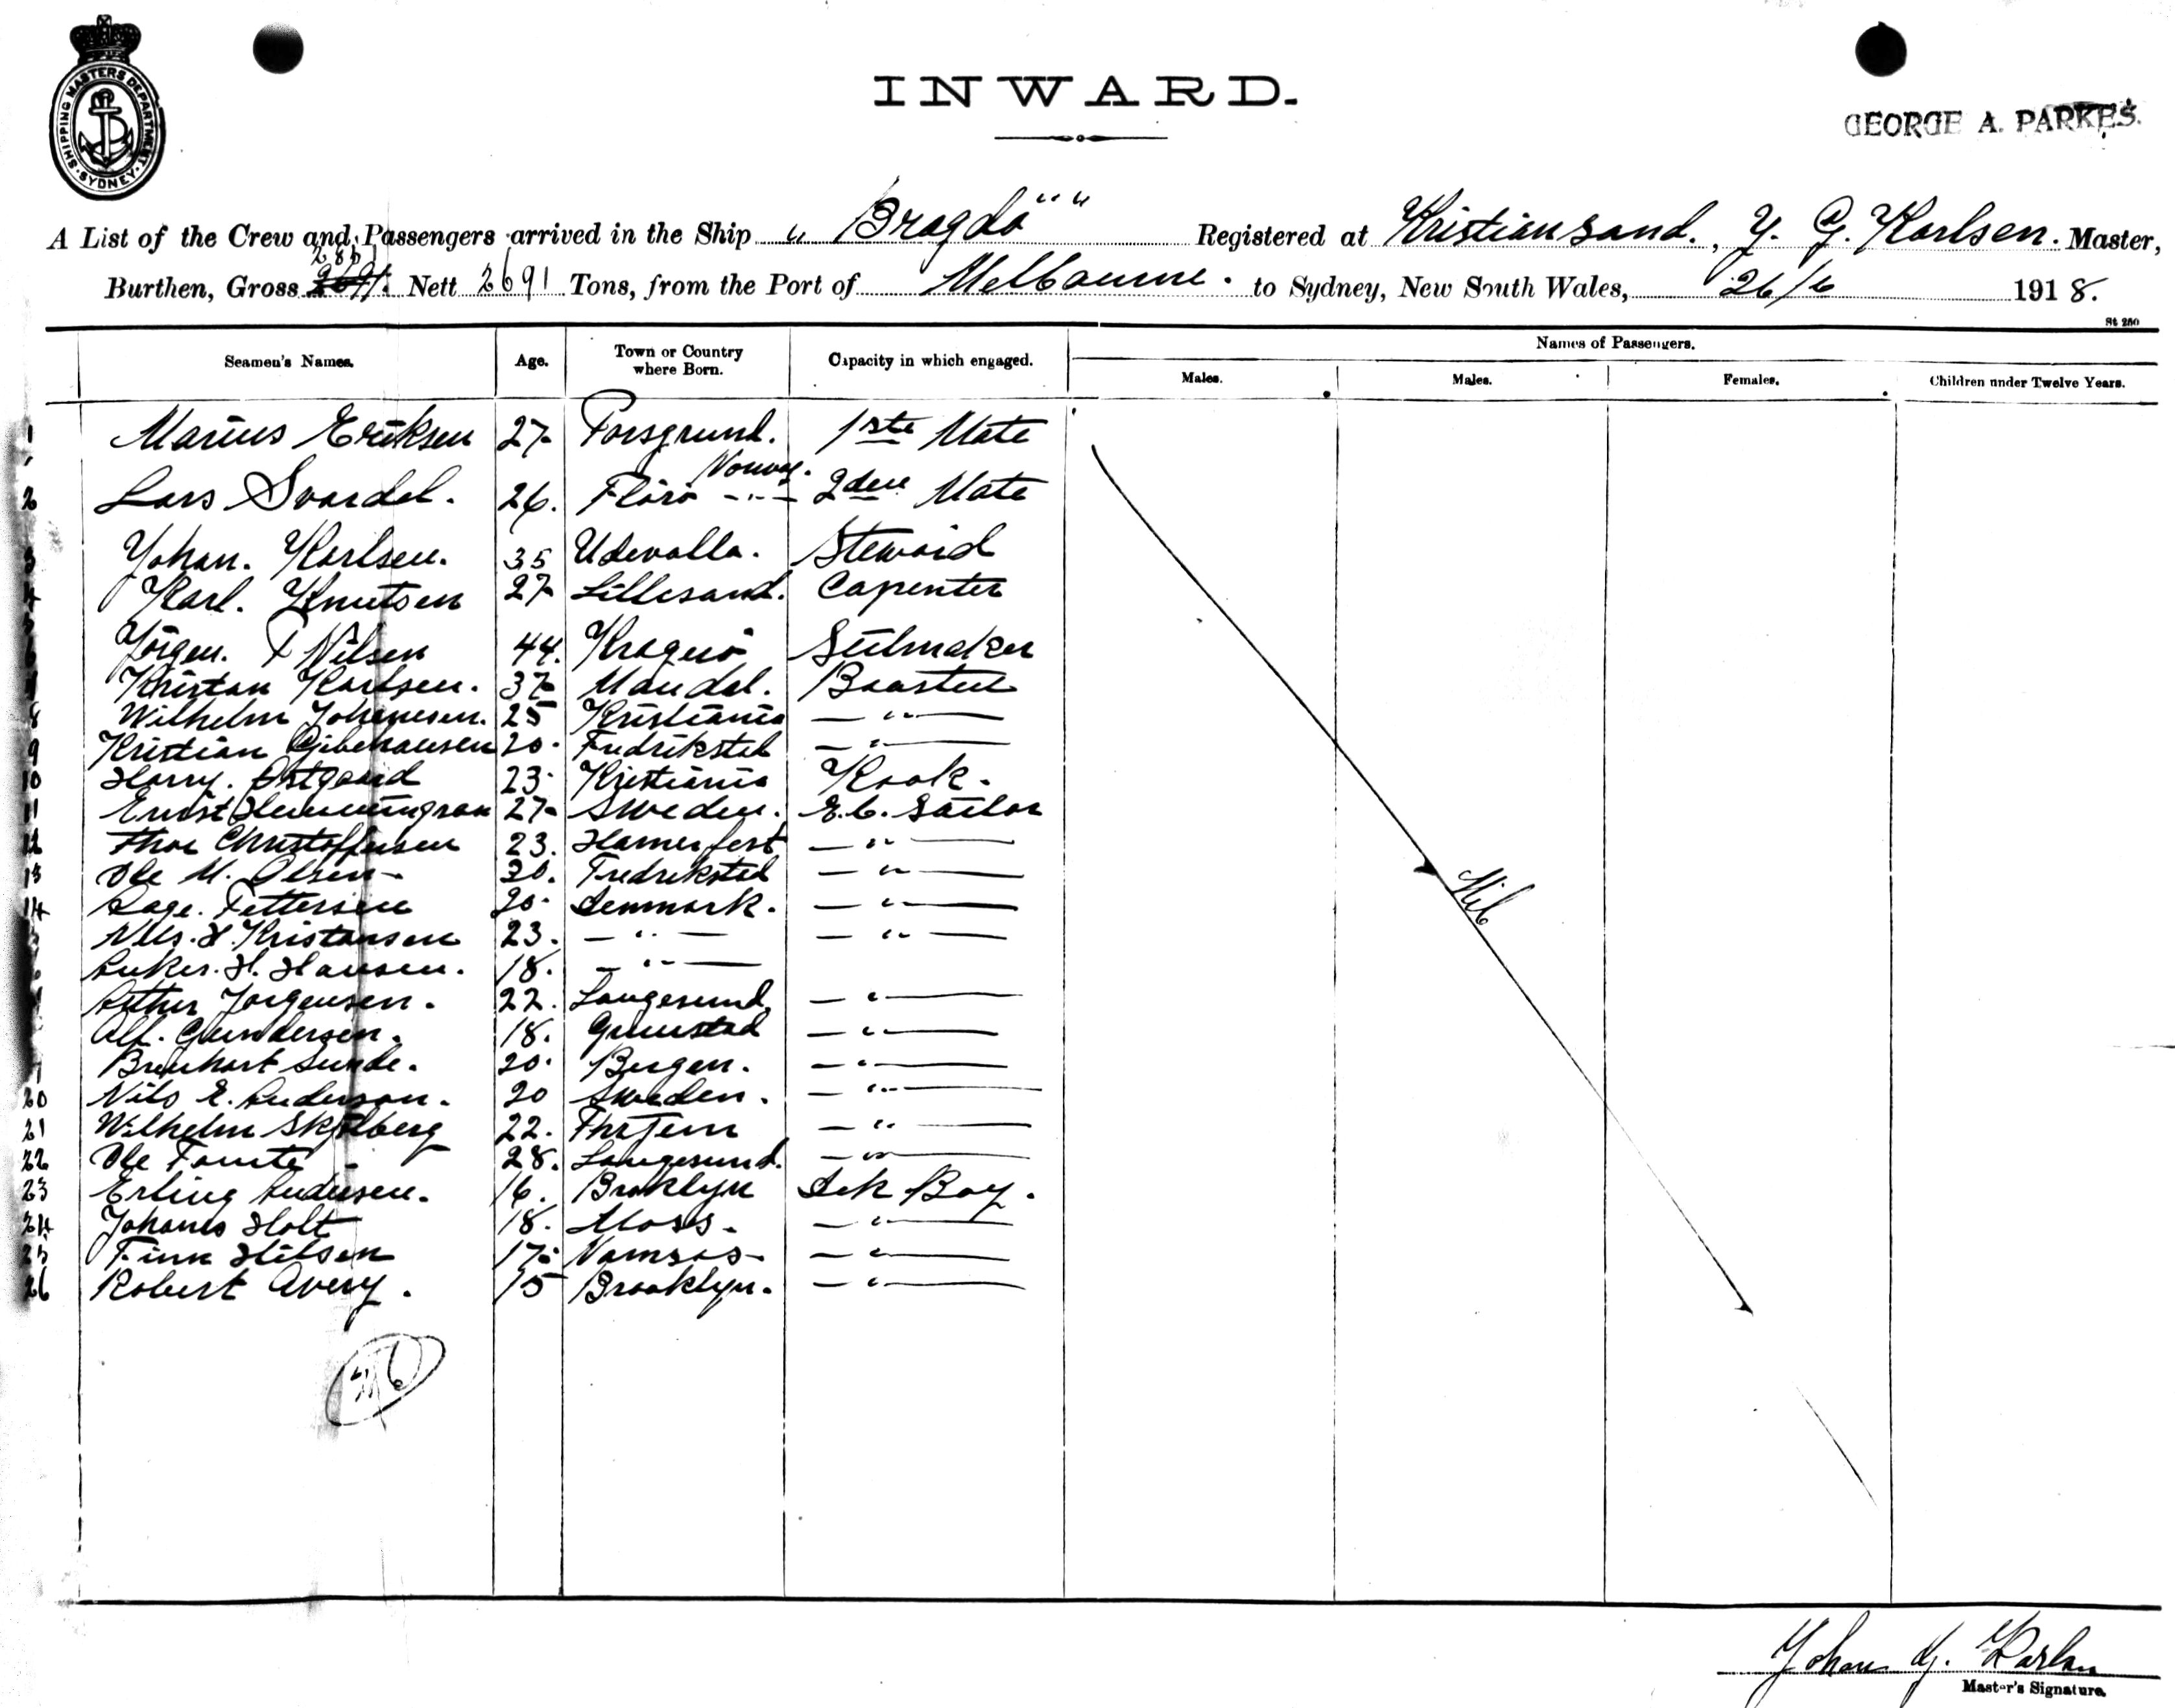 SHIPPING MASTERS DEPARTMENT. SYDNEY.
INWARD.
GEORGE A. PARKES.
A List of the Crew and Passengers arrived in the Ship " Bragdö " Registered at Kristiansand., Y. G. Karlsen. Master,
Burthen, Gross Nett 2691 Tons, from the Port of Melbourne. to Sydney, New South Wales, 26/6 1918.
St 250
Seamen's Names. Age. Town or Country where Born. Capacity in which engaged. Names of Passengers.
Males. Males. Females. Children under Twelve Years.
1 Marius Eriksen 27 Porsgrund. 1ste Mate
Norway.
2 Lars Svardal. 26. Florö -"- 2den Mate
3 Yohan. Karlsen. 35 Udevalla. Steward
4 Karl. Knutsen 27 Lillesand. Capenter
Yörgen. Nilsen 44. Kragerö Seilmaker
Kristan Karlsen. 37 Mandal.
8 Wilhelm Johannesen. 25 Kristiania — " —
9 Kristian 20. Fredrikstad — " —
10 Harry. Östgaard 23. Kristiania Kook.
11 Ernst Hemmingson 27 Sweden. Sailor
12 Thor Christoffersen 23. Hamerfest — " —
13 Ole M. Olsen 20. Fredrikstad — " —
14 Aage. Pettersen 20. Denmark. — " —
Nils. H. Kristansen 23. — " — — " —
H. Hansen. 18. — " —
Arthur Jorgensen. 22. Langesund — " —
Alf. Gundersen. 18. Grimstad — " —
Sunde. 20. Bergen. — " —
20 Nils E. Anderson. 20 Sweden. — " —
21 Wilhelm 22. — " —
22 Ole 28. Langesund. — " —
23 Erling Andersen. 16. Broklyn Dek Boy.
24 Johanes Holt 18. Moss. — " —
25 Finn 17. Namsos — " —
26 Robert Avery. 15 Brooklyn. — " —
Nil
26
Yohan G. Karlsen
Master's Signature.